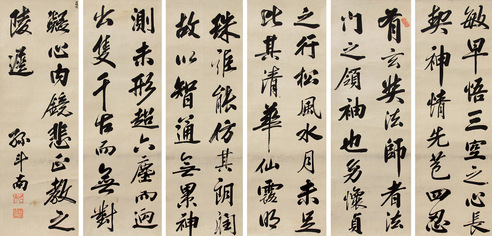 敏早悟三空之心長
契神情先苞四忍
有玄奘法師者法
門之領袖也幼懷貞
之行松風水月未足
比其清華仙露明
珠詎能仿其朗潤
故以智通無累神
測未形超六塵而迥
出隻千古而無對
凝心內鏡悲正教之
陵遲
孫斗南